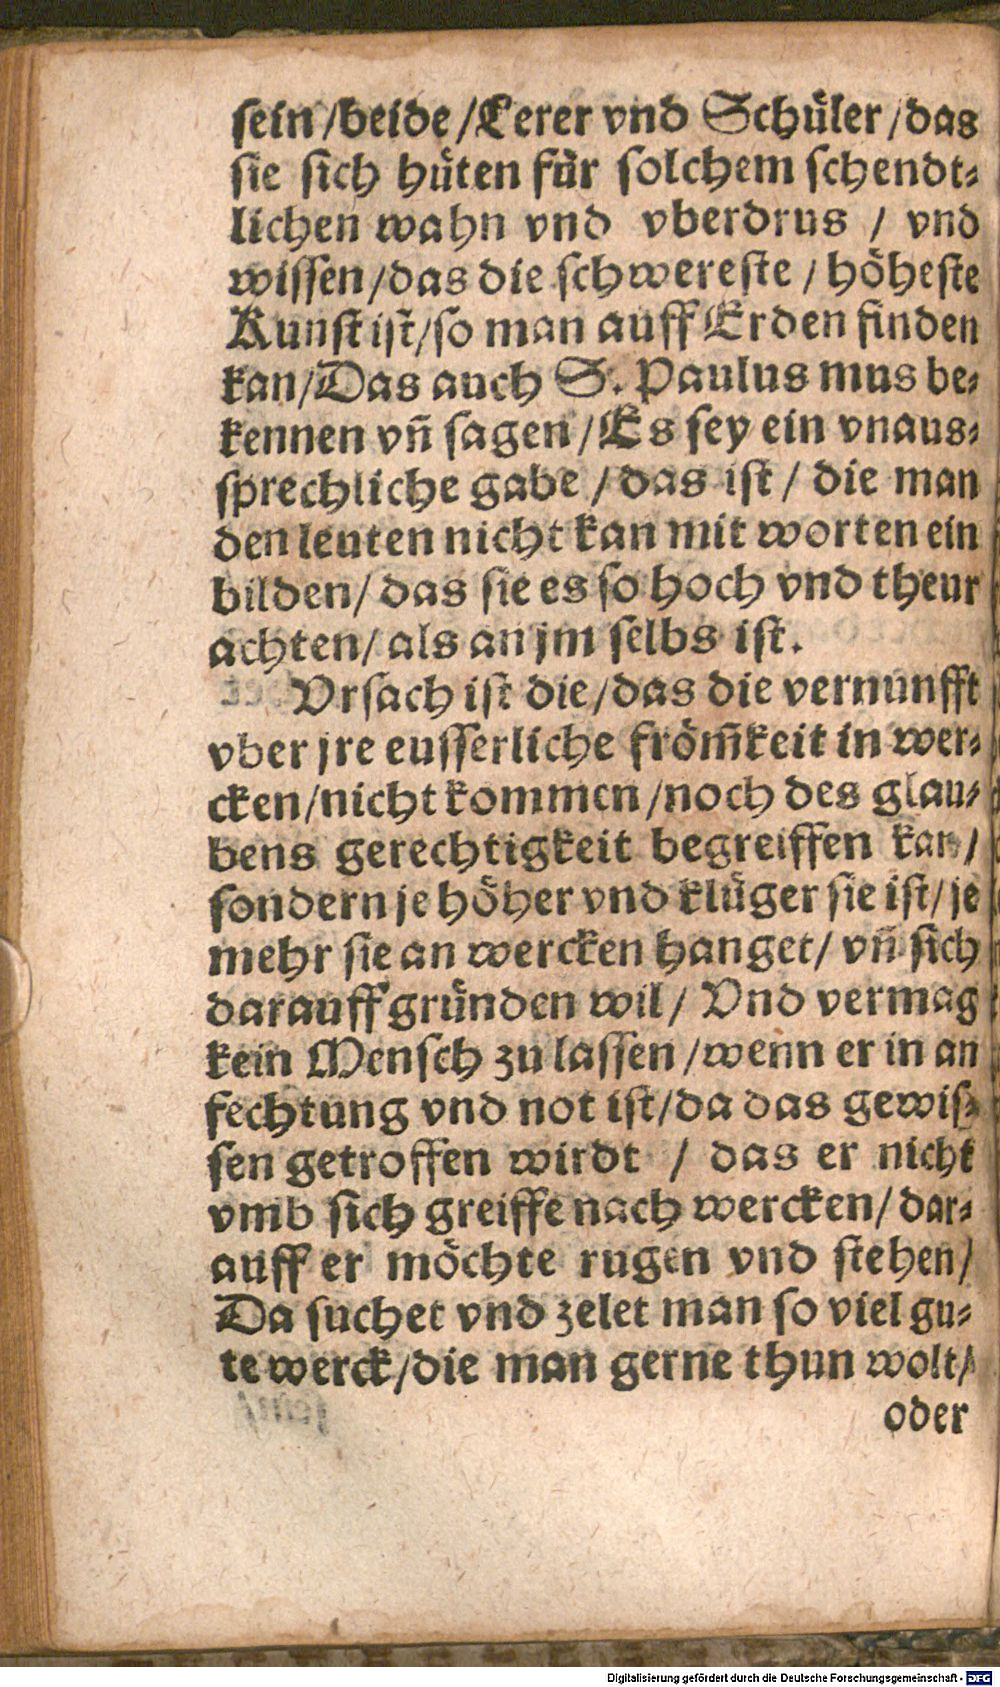 sein/beide/Lerer vnd Schüler/das
sie sich hüten für solchem schendt⸗
lichen wahn vnd vberdrus / vnd
wissen/das die schwereste / höheste
Kunst ist/so man auff Erden finden
kan/Das auch S. Paulus mus be⸗
kennen vñ sagen/Es sey ein vnaus⸗
sprechliche gabe / das ist / die man
den leuten nicht kan mit worten ein
bilden/ das sie es so hoch vnd theur
achten/ als an jm selbs ist.
Vrsach ist die/das die vernunfft
vber jre eusserliche from̃keit in wer⸗
cken/nicht kommen/noch des glau⸗
bens gerechtigkeit begreiffen kan/
sondern je höher vnd klüger sie ist/je
mehr sie an wercken hanget/ vñ sich
darauff gründen wil/ Vnd vermag
kein Mensch zu lassen/wenn er in an
fechtung vnd not ist/da das gewis⸗
sen getroffen wirdt / das er nicht
vmb sich greiffe nach wercken/ dar⸗
auff er möchte rugen vnd stehen/
Da suchet vnd zelet man so viel gu⸗
te werck/die man gerne thun wolt/
oder
Digitalisierung gefördert durch die Deutsche Forschungsgemeinschaft - DFG